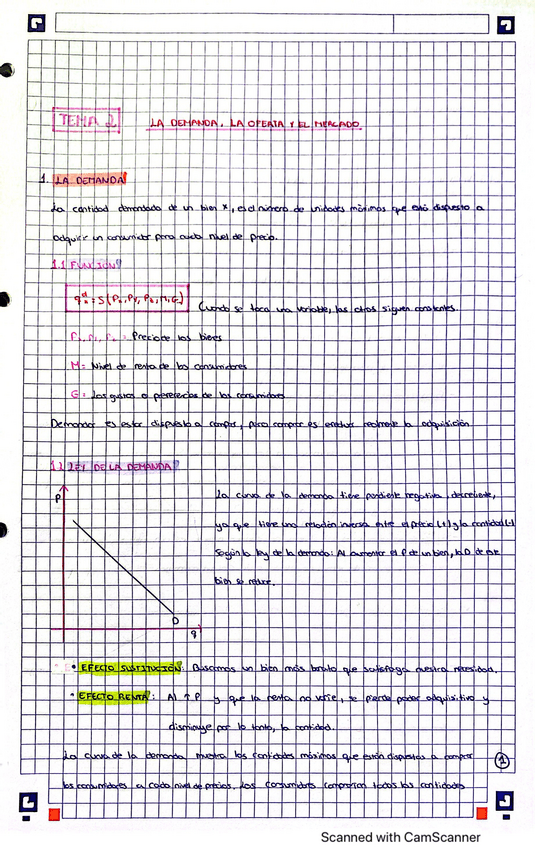 TEMA 2
LA DEMANDA, LA OFERTA Y EL MERCADO
1. LA DEMANDA
La cantidad demandada de un bien x, es el número de unidades máximas que está dispuesto a
adquirir un consumidor para cada nivel de precio.
1.1 FUNCIÓN
Cuando se toca una variable, las otras siguen constantes.
Precio de los bienes
M = Nivel de renta de los consumidores
G = Los gustos o preferencias de los consumidores
Demandar es estar dispuesto a comprar, pero comprar es efectuar realmente la adquisición
1.2 LEY DE LA DEMANDA
P
La curva de la demanda tiene pendiente negativa, decreciente,
ya que tiene una relación inversa entre el precio (+) y la cantidad (-)
Según la ley de la demanda: Al aumentar el P de un bien, la D de este
bien se reduce.
D
q
• EFECTO SUSTITUCIÓN: Buscamos un bien más barato que satisfaga nuestra necesidad.
• EFECTO RENTA: Al ↑ P y que la renta no varíe, se pierde poder adquisitivo y
disminuye por lo tanto, la cantidad.
La curva de la demanda muestra las cantidades máximas que están dispuestos a comprar
los consumidores a cada nivel de precios. Los consumidores comprarían todas las cantidades
1
Scanned with CamScanner